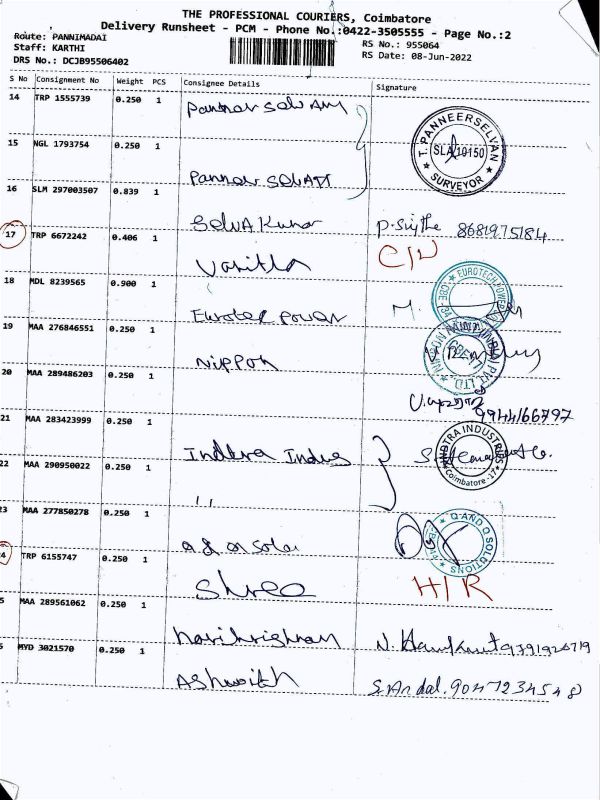 THE PROFESSIONAL COURIERS, Coimbatore
Delivery Runsheet - PCM - Phone No.:0422-3505555 - Page No.:2
Route: PANNIMADAI
RS No.: 955064
Staff: KARTHI
RS Date: 08-Jun-2022
DRS No.: DCJB95506402
S No Consignment No Weight PCS Consignee Details Signature
14 TRP 1555739 0.250 1 Pannar selvam
T. PANNEERSELVAN
SLA/10150
SURVEYOR
15 NGL 1793754 0.250 1
Pannar selvam
16 SLM 297003507 0.839 1
Selvakumar 8681975184
17 TRP 6672242 0.406 1
18 MDL 8239565 0.900 1
EUROTECH POWER
Eurotek power
19 MAA 276846551 0.250 1
Nippon
20 MAA 289486203 0.250 1
9944166797
21 MAA 283423999 0.250 1
Indtra Indus
INDTRA INDUSTRIES
Coimbatore - 17
22 MAA 290950022 0.250 1
11
23 MAA 277850278 0.250 1
Q AND Q SOLUTIONS
24 TRP 6155747 0.250 1
Shree H/R
5 MAA 289561062 0.250 1
Harikrishnan
MYD 3021570 0.250 1
Ashwith S. Andal. 9047234548